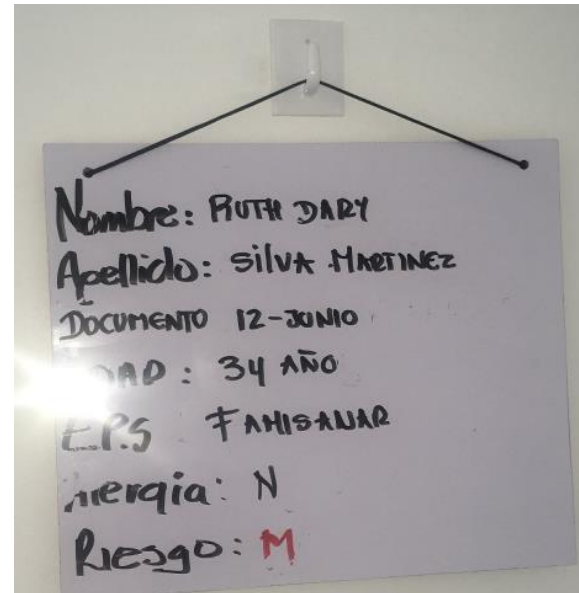 Nombre: RUTH DARY
Apellido: SilVA MARTINEZ
DOCUMENTO 12-JUNIO
34 AÑO
E.P.S FAMISANAR
N
Riesgo: M